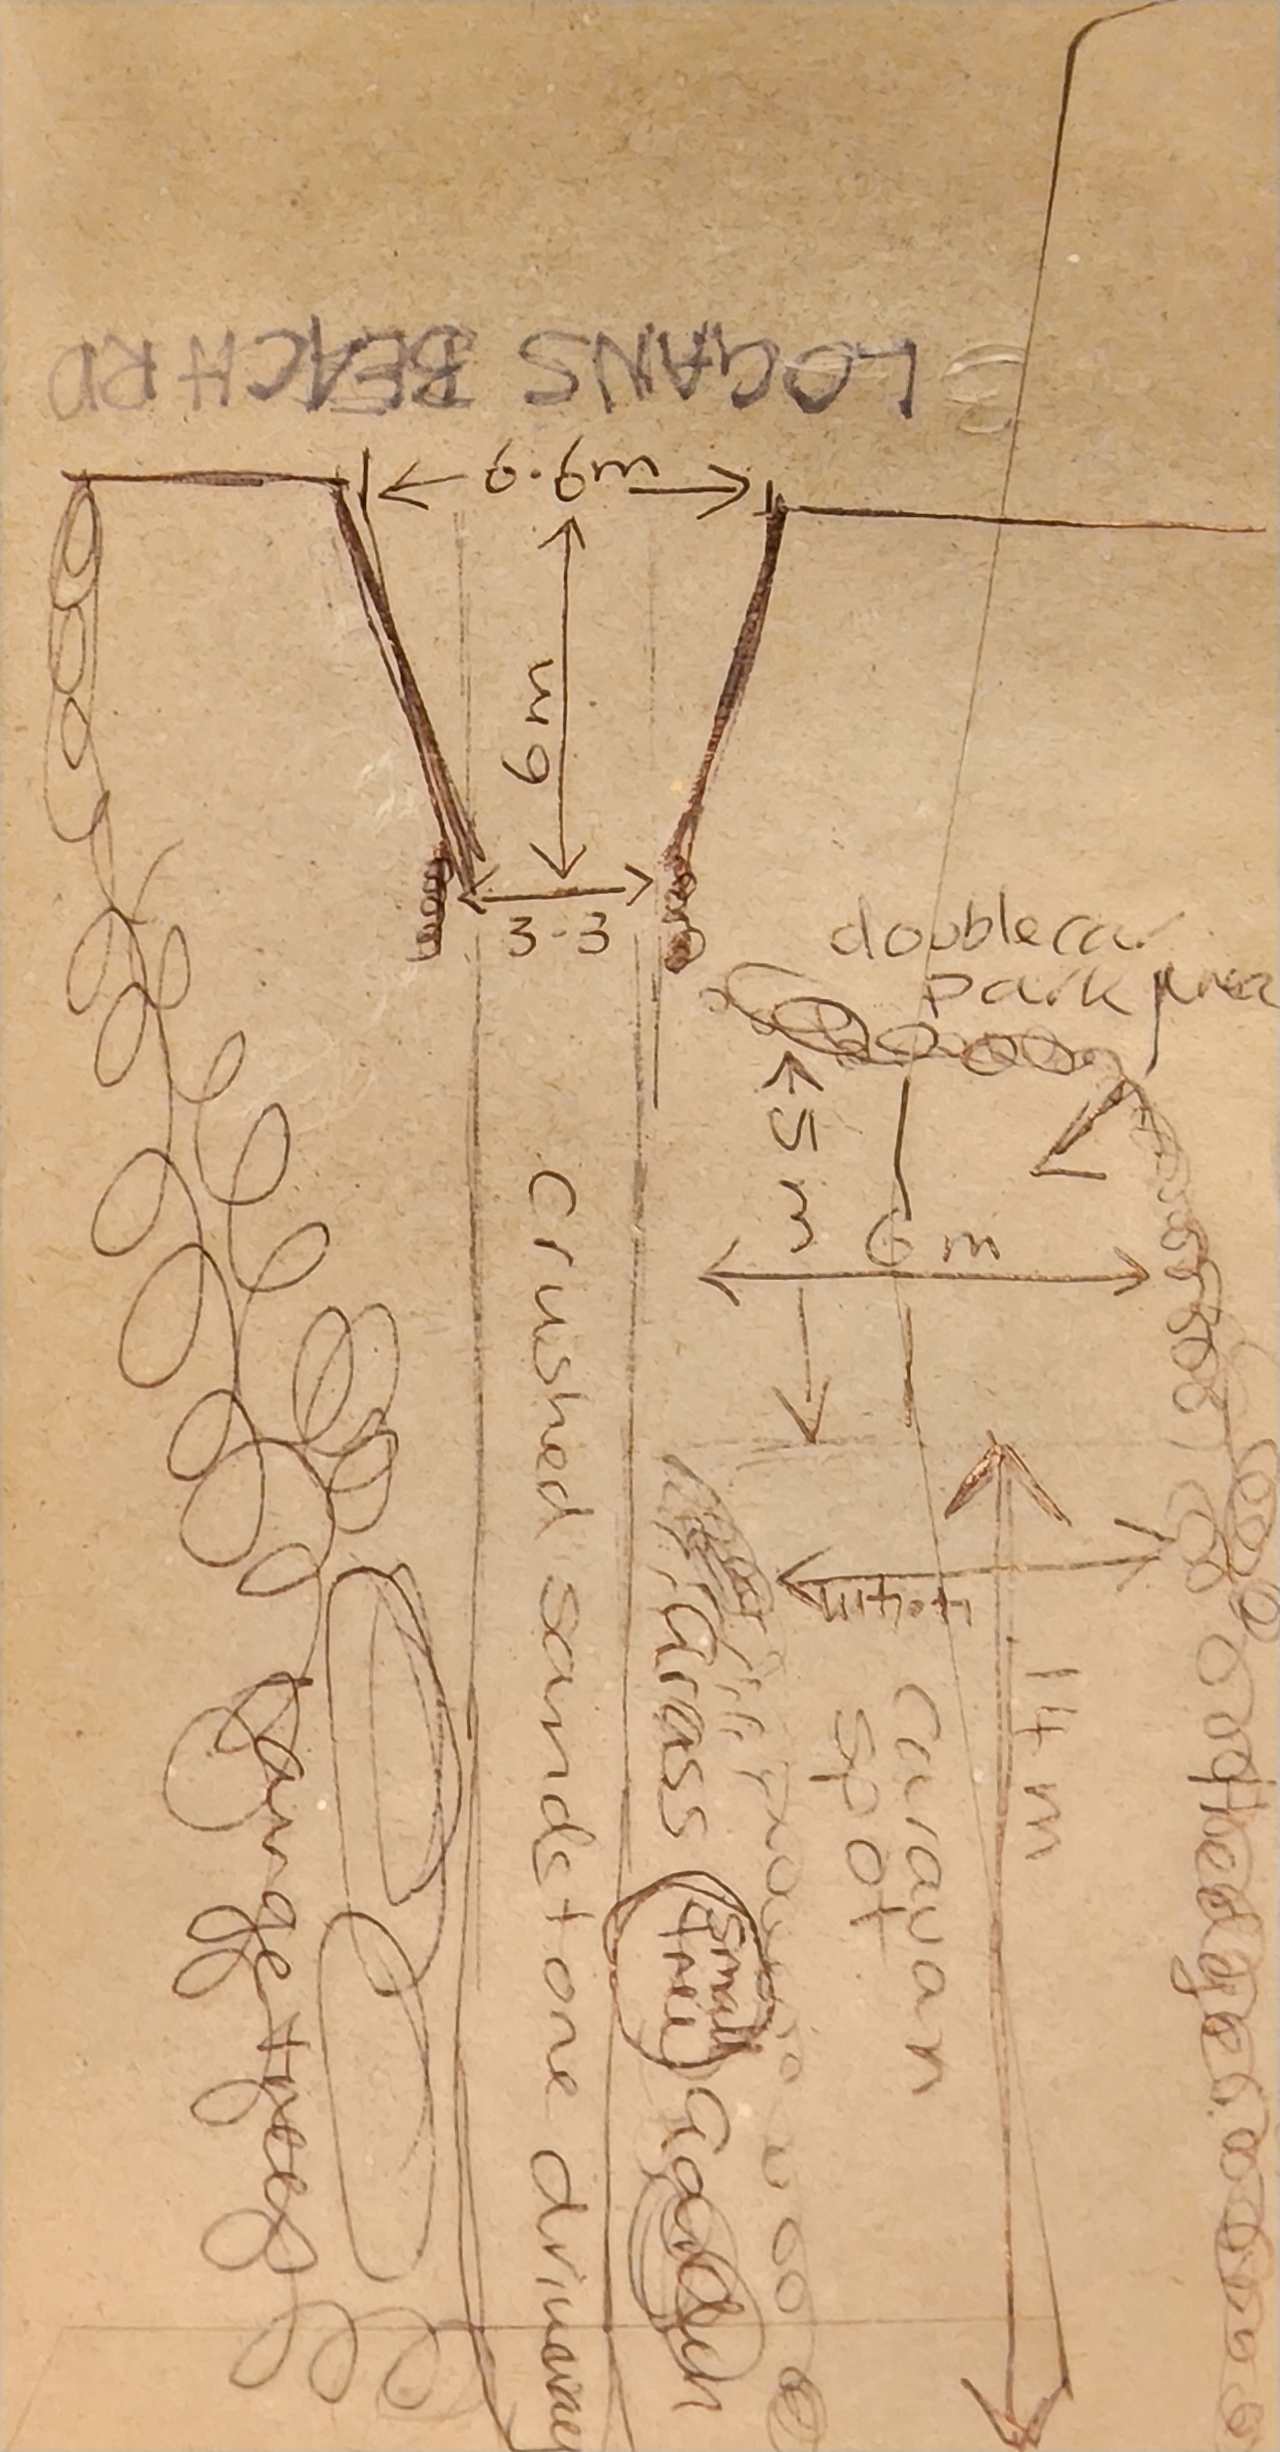 LOGANS BEACH RD
6.6m
6m
3.3
double car
park area
5m
6m
4.4m
14 m
Crushed sandstone driveway
Grass
small
tree
Garden
Caravan
spot
Hedge